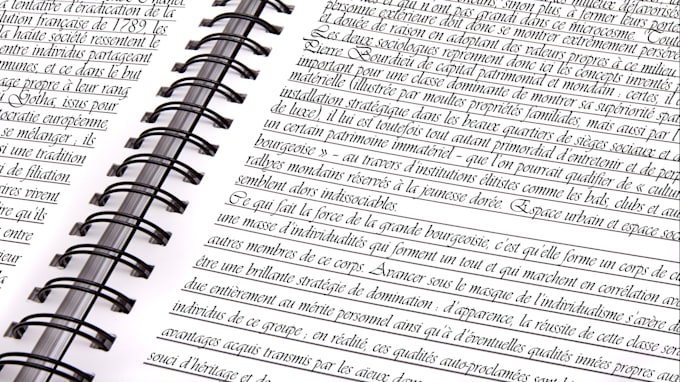 tentative d'éradication de
ution française de 1789 les
la haute société ressentent le
entre individus partageant
munes, et ce dans le but
age propre à leur rang
Gotha, issus pour
ocratie européenne,
se mélanger ; ils
de filiation
rires vivent
ire qu'ils
entre
ieur
personne extérieure doit donc se montrer extrêmement persévé
et douée de raison en adoptant des valeurs propres à ce milieu.
Les deux sociologues reprennent donc ici les concepts inventés
Pierre Bourdieu de capital patrimonial et mondain : certes, il
important pour une classe dominante de montrer sa supériorité spa
matérielle (illustrée par moultes propriétés familiales, mais aussi par l
installation stratégique dans les beaux quartiers de sièges sociaux et
de luxe), il lui est toutefois tout autant primordial d'entretenir et de per
un certain patrimoine immatériel – que l'on pourrait qualifier de « cultu
bourgeoise » - au travers d'institutions élitistes comme les bals, clubs et au
rallyes mondains réservés à la jeunesse dorée. Espace urbain et espace soc
semblent alors indissociables.
Ce qui fait la force de la grande bourgeoisie, c'est qu'elle forme un corps de cl
une masse d'individualités qui forment un tout et qui marchent en corrélation ave
autres membres de ce corps. Avancer sous le masque de l'individualisme s'avère d
être une brillante stratégie de domination ; d'apparence, la réussite de cette classe ser
due entièrement au mérite personnel ainsi qu'à d'éventuelles qualités innées propres aux
individus de ce groupe ; en réalité, ces qualités auto-proclamées sont
avantages acquis transmis par les aïeux
souci d'héritage et de